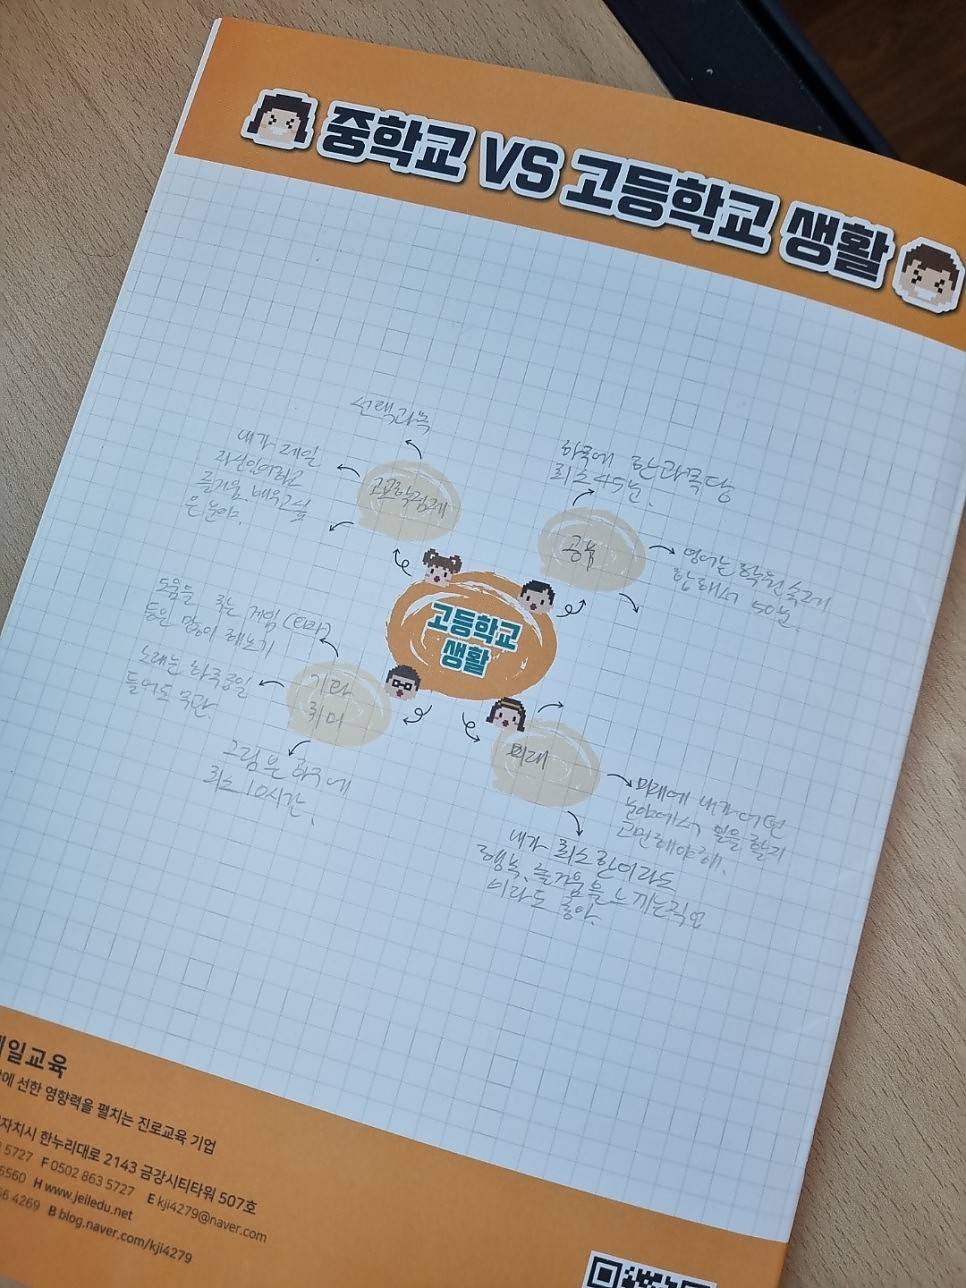 중학교 VS 고등학교 생활
선택과목
내가 제일
자신있어하고
즐거운, 배우고싶
은 분야.
고교학점제
하루에 한과목당
최소 45분.
공부
영어는 학원숙제
합해서 50분.
고등학교
생활
도움을 주는 게임(타자)
들은 많이 해보기
노래는 하루종일
들어도 무관.
기타
취미
그림은 하루에
최소 10시간.
미래
미래에 내가 어떤
분야에서 일을 할지
고민해야해.
내가 최소한이라도
행복, 즐거움을 느끼는직업
이라도 좋아.
제일교육
에 선한 영향력을 펼치는 진로교육 기업
자치시 한누리대로 2143 금강시티타워 507호
5727 F 0502 863 5727 E kji4279@naver.com
6560 H www.jeiledu.net
4269 B blog.naver.com/kji4279